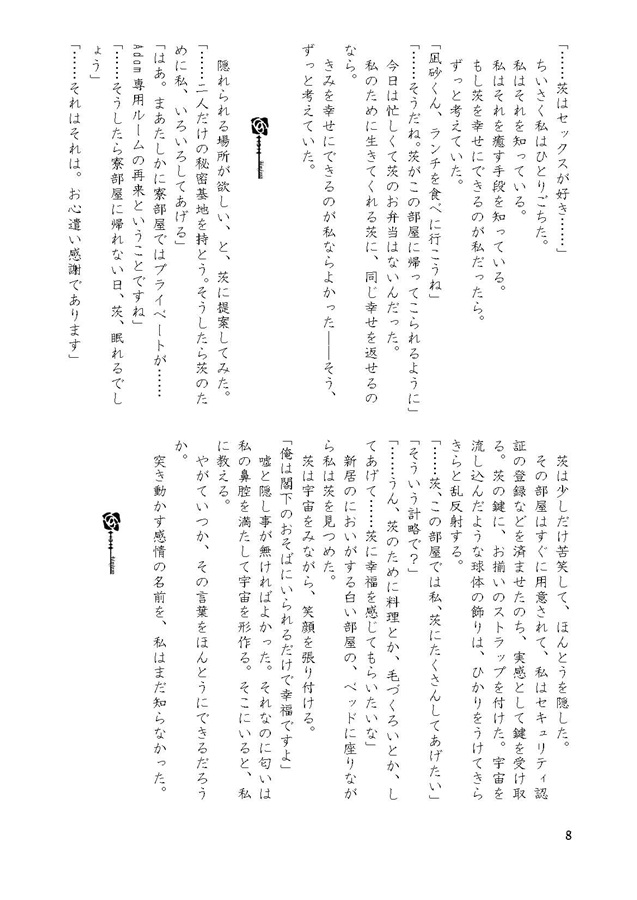 「……茨はセックスが好き……」
ちいさく私はひとりごちた。
私はそれを知っている。
私はそれを癒す手段を知っている。
もし茨を幸せにできるのが私だったら。
ずっと考えていた。
「凪砂くん、ランチを食べに行こうね」
「……そうだね。茨がこの部屋に帰ってこられるように」
今日は忙しくて茨のお弁当はないんだった。
私のために生きてくれる茨に、同じ幸せを返せるの
なら。
きみを幸せにできるのが私ならよかった――そう、
ずっと考えていた。
隠れられる場所が欲しい、と、茨に提案してみた。
「……二人だけの秘密基地を持とう。そうしたら茨のた
めに私、いろいろしてあげる」
「はあ。まあたしかに寮部屋ではプライベートが……
Adam専用ルームの再来ということですね」
「……そうしたら寮部屋に帰れない日、茨、眠れるでし
ょう」
「……それはそれは。お心遣い感謝であります」
茨は少しだけ苦笑して、ほんとうを隠した。
その部屋はすぐに用意されて、私はセキュリティ認
証の登録などを済ませたのち、実感として鍵を受け取
る。茨の鍵に、お揃いのストラップを付けた。宇宙を
流し込んだような球体の飾りは、ひかりをうけてきら
きらと乱反射する。
「……茨、この部屋では私、茨にたくさんしてあげたい」
「そういう計略で？」
「……うん、茨のために料理とか、毛づくろいとか、し
てあげて……茨に幸福を感じてもらいたいな」
新居のにおいがする白い部屋の、ベッドに座りなが
ら私は茨を見つめた。
茨は宇宙をみながら、笑顔を張り付ける。
「俺は閣下のおそばにいられるだけで幸福ですよ」
嘘と隠し事が無ければよかった。それなのに匂いは
私の鼻腔を満たして宇宙を形作る。そこにいると、私
に教える。
やがていつか、その言葉をほんとうにできるだろう
か。
突き動かす感情の名前を、私はまだ知らなかった。
8